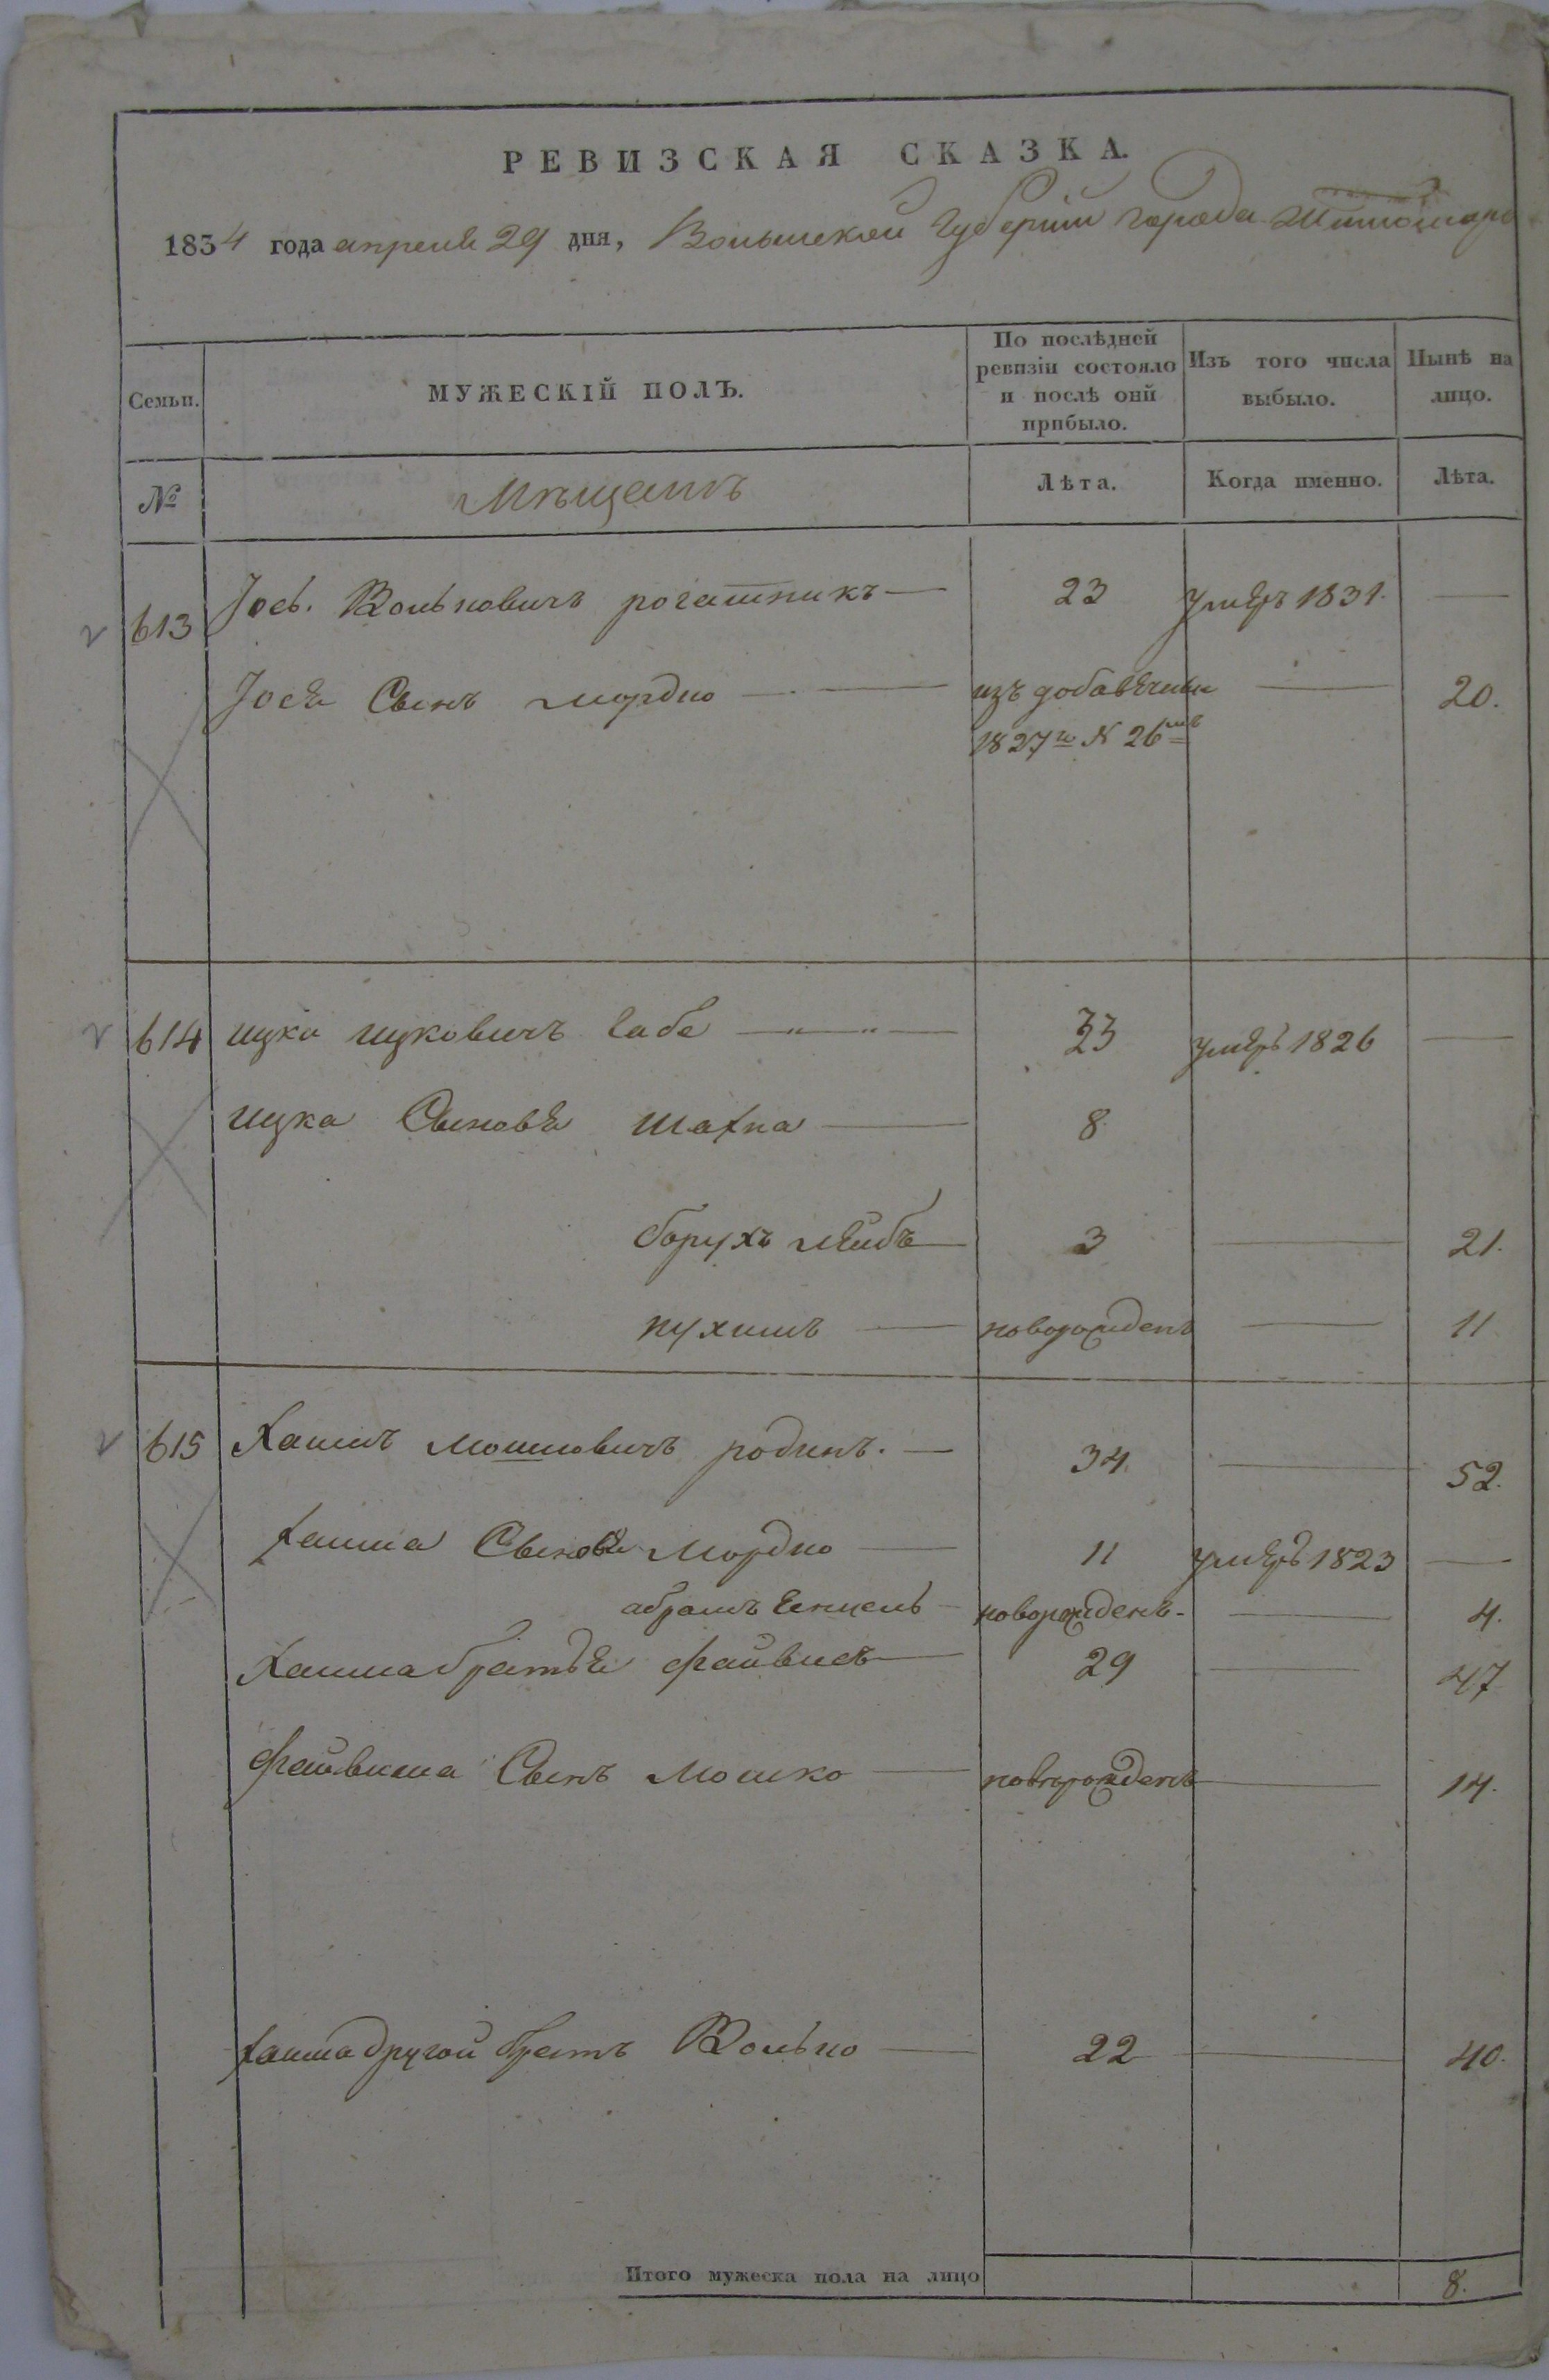 РЕВИЗСКАЯ СКАЗКА.
1834 года апреля 29 дня, Волынской Губернии города Житомира
Семьи. МУЖЕСКІЙ ПОЛЪ. По послѣдней ревизіи состояло и послѣ оной прибыло. Изъ того числа выбыло. Нынѣ на лицо.
№ Мѣщанъ Лѣта. Когда именно. Лѣта.
613 Іось Вольковичъ рогатникъ 23 умеръ 1831.
Іося Сынъ мордко изъ добавочныхъ 20.
1827го N 26
614 ицко ицковичъ 33 умеръ 1826
ицка Сыновя шахна 8
борухъ лейбъ 3 21.
нухимъ новорожденъ 11
615 Хаимъ Мошковичъ родинъ. 34. 52.
хаима Сыновя Мордко 11 умеръ 1823
абрамъ новорожденъ 4.
Хаима братья файвишъ 29 47
файвиша Сынъ Мошко новорожденъ 14.
хаима другой братъ Волько 22 40.
Итого мужеска пола на лицо 8.